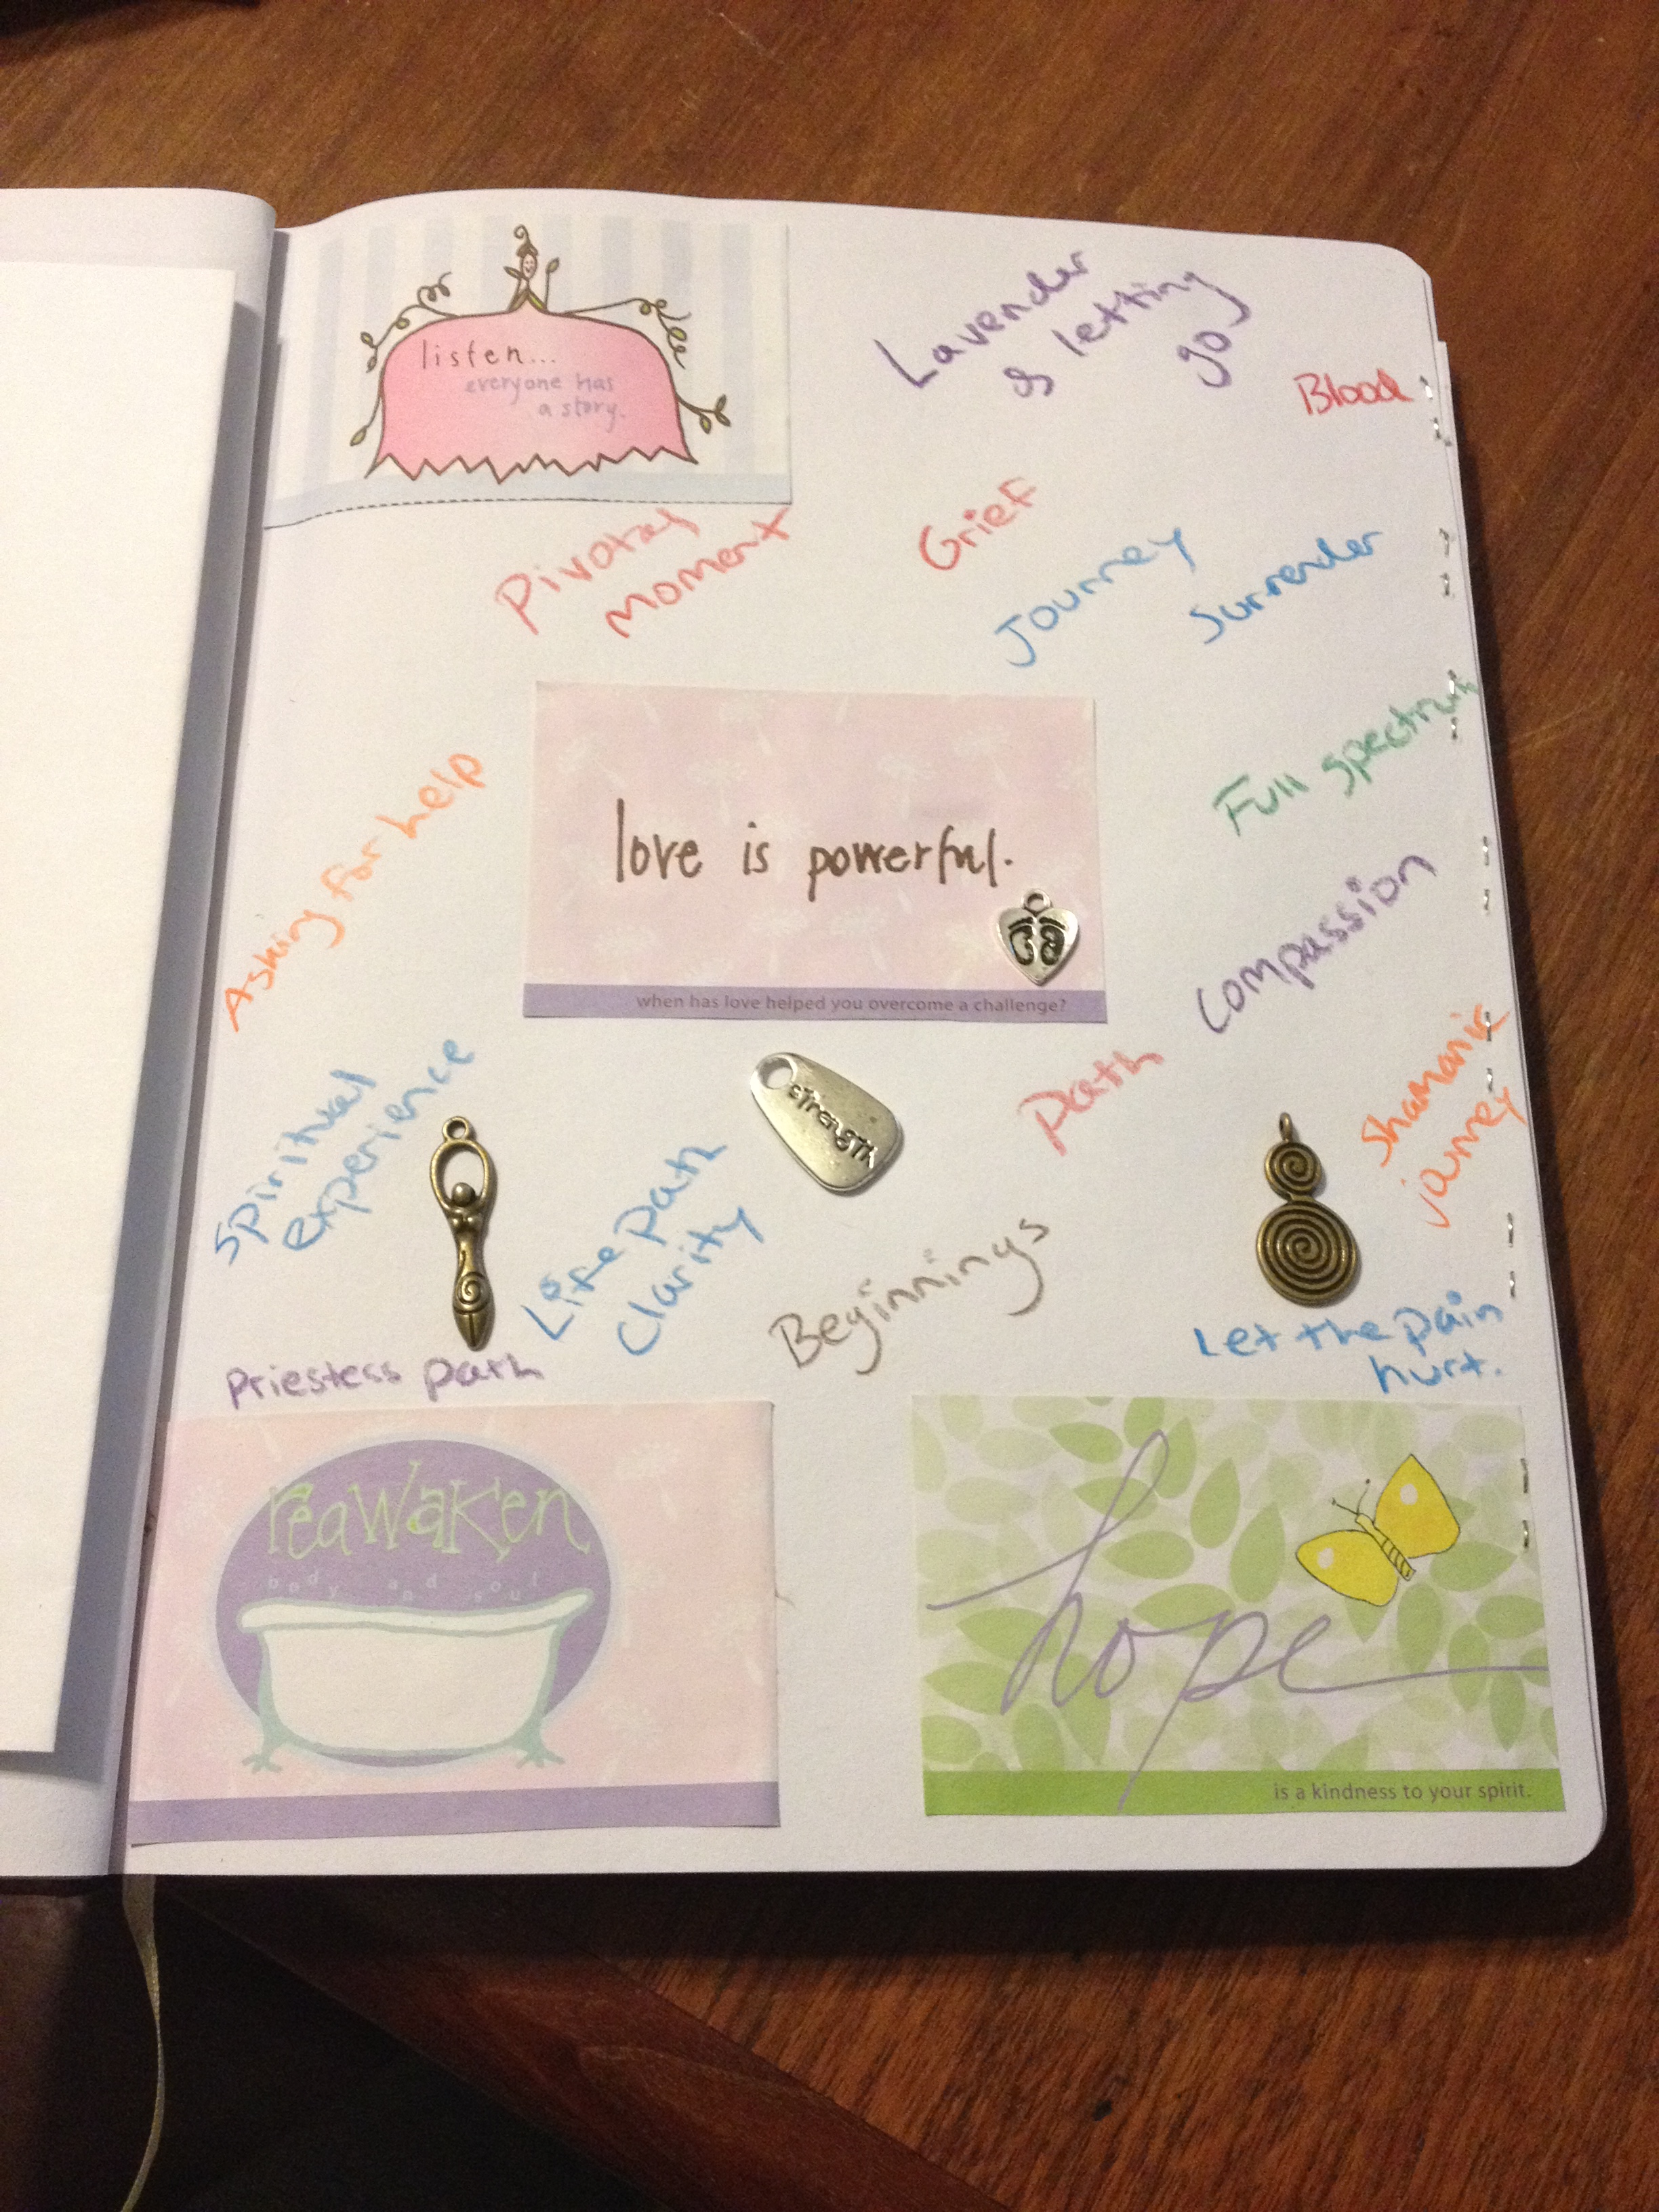 listen...
everyone has
a story.
Lavender
& letting
go
Blood
Pivotal
moment
Grief
Journey
Surrender
Asking for help
love is powerful.
when has love helped you overcome a challenge?
Full spectrum
Compassion
Spiritual
experience
strength
Path
Shamanic
journey
Life path
Clarity
Beginnings
Let the pain
hurt.
Priestess path
reawaken
body and soul
hope
is a kindness to your spirit.